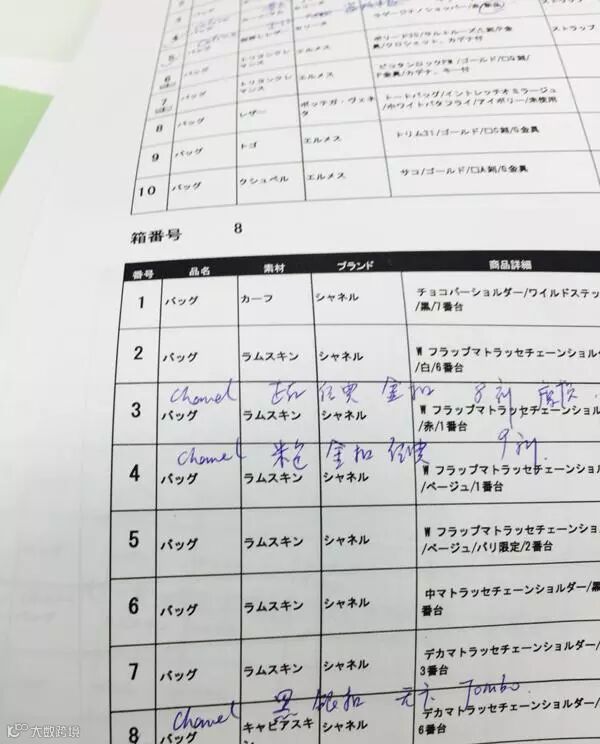 バッグ セリーヌ
ボリード35/
具/クロシェット、カデナ付 ストラップ
6 バッグ トリヨンクレマンス エルメス ピコタンロックPM /ゴールド/□G刻/
F金具/カデナ、キー付
7 バッグ トリヨンクレマンス エルメス トートバッグ/イントレッチオミラージュ
/ホワイトバタフライ/アイボリー/未使用
8 バッグ レザー ボッテガ・ヴェネタ
9 バッグ トゴ エルメス トリム31/ゴールド/□G刻/G金具
10 バッグ クシュベル エルメス サコ/ゴールド/□A刻/G金具
箱番号 8
番号 品名 素材 ブランド 商品詳細
1 バッグ カーフ シャネル チョコバーショルダー/ワイルドステッ
/黒/7番台
2 バッグ ラムスキン シャネル W フラップマトラッセチェーンショルダ
/白/6番台
Chanel 金扣
3 バッグ ラムスキン シャネル W フラップマトラッセチェーンショルダ
/赤/1番台
Chanel 米色 金扣 9
4 バッグ ラムスキン シャネル W フラップマトラッセチェーンショル
/ベージュ/1番台
5 バッグ ラムスキン シャネル W フラップマトラッセチェーンショル
/ベージュ/パリ限定/2番台
6 バッグ ラムスキン シャネル 中マトラッセチェーンショルダー/黒
番台
7 バッグ ラムスキン シャネル デカマトラッセチェーンショルダー/
3番台
Chanel 黒 银扣 Jombo
8 バッグ キャビアスキ シャネル デカマトラッセチェーンショルダー
6番台
大数跨境